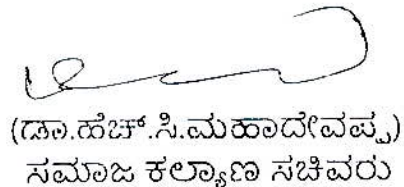 (ಡಾ.ಹೆಚ್.ಸಿ.ಮಹಾದೇವಪ್ಪ)
ಸಮಾಜ ಕಲ್ಯಾಣ ಸಚಿವರು